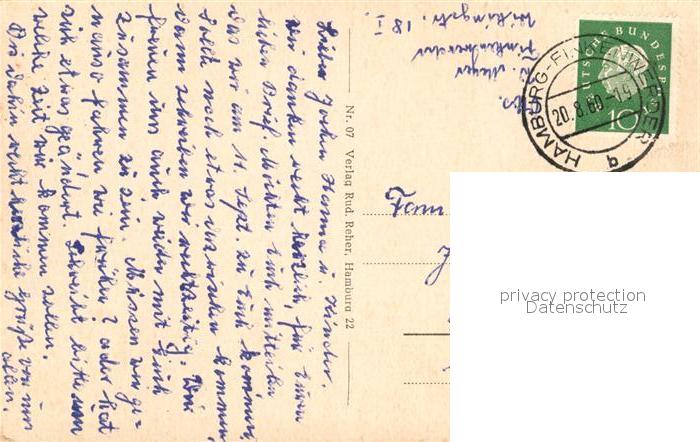 Liebe John Hanna u. Kinder.
Wir danken recht herzlich, für Euren
lieben Brief. Möchten Euch mitteilen
das wir am 11. Sept. zu Euch kommen
Sollte noch etwas dazwischen kommen
dann schreiben wir rechtzeitig. Wir
freuen uns auch wieder mit Euch
zusammen zu sein. Müssen wir ge-
nauso fahren wie früher? oder hat
sich etwas geändert. Schreibt bitte um
welche Zeit wir kommen sollen.
Bis dahin recht herzliche Grüße von uns
allen.
Nr. 07 Verlag Rud. Reher, Hamburg 22
Abs
Finkenwerder
18 I.
DEUTSCHE BUNDESPOST
10
HAMBURG-FINKENWERDER
20.8.60-14
b
Fam
privacy protection
Datenschutz